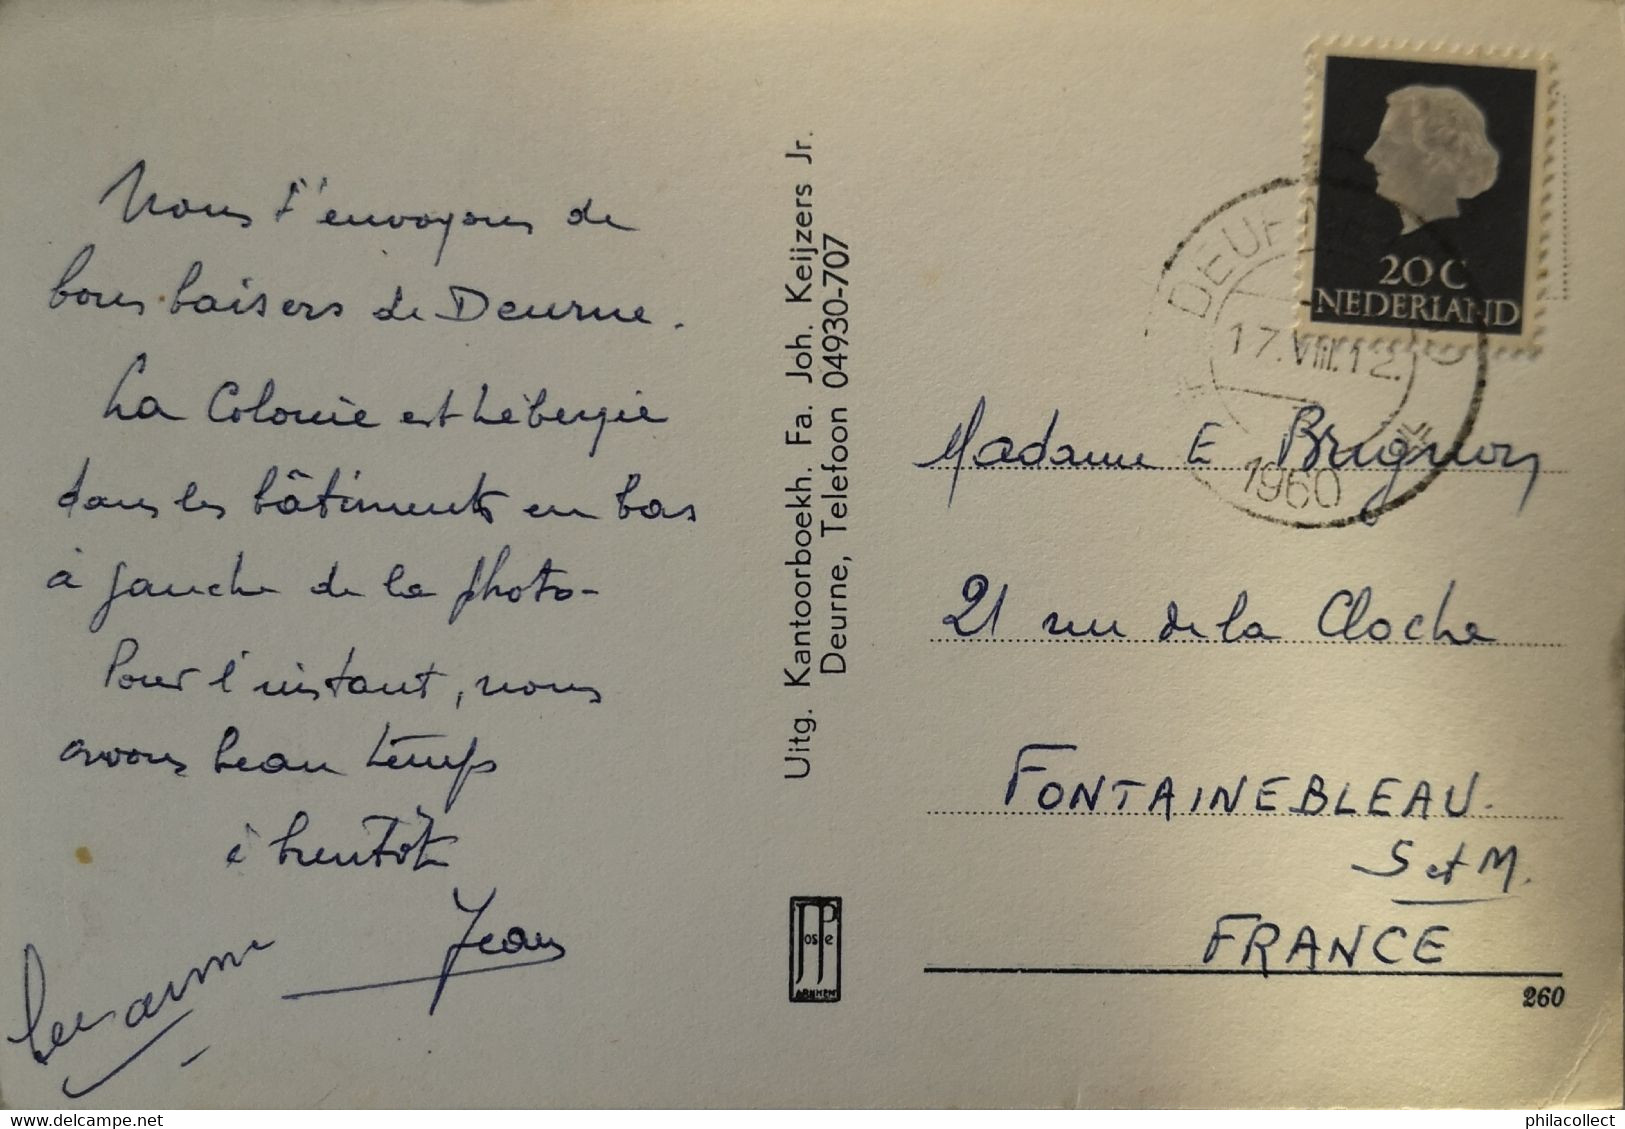 Nous t'envoyons de
bons baisers de Deurne.
La Colonie est hébergée
dans les bâtiments en bas
à gauche de la photo-
Pour l'instant, nous
avons beau temps
à bientôt
Jean
Uitg. Kantoorboekh. Fa. Joh. Keijzers Jr.
Deurne, Telefoon 04930-707
Poste
ARNHEM
20 C
NEDERLAND
17.VIII.12.
1960
Madame E Brugnon
21 rue de la Cloche
FONTAINEBLEAU.
S et M.
FRANCE
260
www.delcampe.net
philacollect